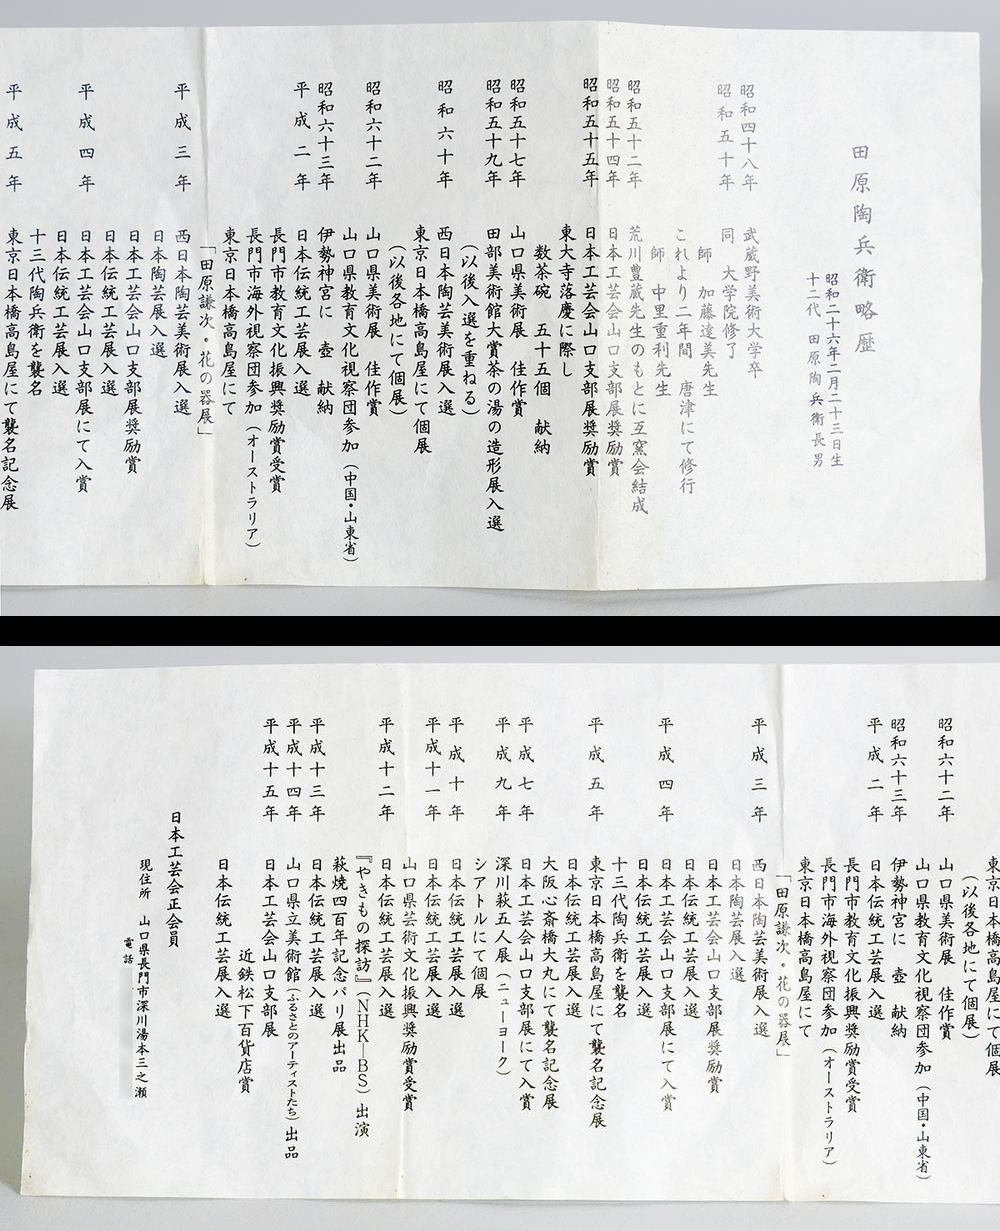 田原陶兵衛略歴
昭和二十六年二月二十三日生
十二代 田原陶兵衛長男
昭和四十八年 武蔵野美術大学卒
昭和五十年 同 大学院修了
師 加藤達美先生
これより二年間 唐津にて修行
師 中里重利先生
昭和五十二年 荒川豊蔵先生のもとに互窯会結成
昭和五十四年 日本工芸会山口支部展奨励賞
昭和五十五年 日本工芸会山口支部展奨励賞
東大寺落慶に際し
数茶碗 五十五個 献納
昭和五十七年 山口県美術展 佳作賞
昭和五十九年 田部美術館大賞茶の湯の造形展入選
(以後入選を重ねる)
昭和六十年 西日本陶芸美術展入選
東京日本橋高島屋にて個展
(以後各地にて個展)
昭和六十二年 山口県美術展 佳作賞
山口県教育文化視察団参加(中国・山東省)
昭和六十三年 伊勢神宮に 壺 献納
平成二年 日本伝統工芸展入選
長門市教育文化振興奨励賞受賞
長門市海外視察団参加(オーストラリア)
東京日本橋高島屋にて
「田原謙次・花の器展」
平成三年 西日本陶芸美術展入選
日本陶芸展入選
日本工芸会山口支部展奨励賞
日本伝統工芸展入選
平成四年 日本工芸会山口支部展にて入賞
日本伝統工芸展入選
十三代陶兵衛を襲名
平成五年 東京日本橋高島屋にて襲名記念展
東京日本橋高島屋にて個展
(以後各地にて個展)
昭和六十二年 山口県美術展 佳作賞
山口県教育文化視察団参加(中国・山東省)
昭和六十三年 伊勢神宮に 壺 献納
平成二年 日本伝統工芸展入選
長門市教育文化振興奨励賞受賞
長門市海外視察団参加(オーストラリア)
東京日本橋高島屋にて
「田原謙次・花の器展」
平成三年 西日本陶芸美術展入選
日本陶芸展入選
日本工芸会山口支部展奨励賞
日本伝統工芸展入選
平成四年 日本工芸会山口支部展にて入賞
日本伝統工芸展入選
十三代陶兵衛を襲名
平成五年 東京日本橋高島屋にて襲名記念展
日本伝統工芸展入選
大阪心斎橋大丸にて襲名記念展
平成七年 日本工芸会山口支部展にて入賞
平成九年 深川萩五人展(ニューヨーク)
シアトルにて個展
平成十年 日本伝統工芸展入選
平成十一年 日本伝統工芸展入選
山口県芸術文化振興奨励賞受賞
平成十二年 日本伝統工芸展入選
『やきもの探訪』(NHK―BS)出演
萩焼四百年記念パリ展出品
平成十三年 日本伝統工芸展入選
平成十四年 山口県立美術館(ふるさとのアーティストたち)出品
平成十五年 日本工芸会山口支部展
近鉄松下百貨店賞
日本伝統工芸展入選
日本工芸会正会員
現住所 山口県長門市深川湯本三之瀬
電話